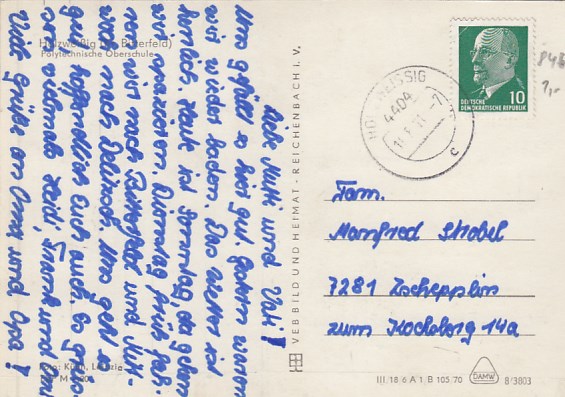 Holzweißig (Kr. Bitterfeld)
Polytechnische Oberschule
Liebe Mutti und Vati!
Uns gefällt es hier gut. Gestern waren
wir wieder baden. Das Wetter ist
herrlich. Heute ist Sonntag, da gehen
wir spazieren. Dienstag früh
wir nach Bitterfeld und
nach Delitzsch. Uns geht es
gut, hoffentlich Euch auch. Es grüßen
vielmals Heidi, Frank und
Viele Grüße von Oma und Opa!
Foto: Kühn, Leipzig
VEB BILD UND HEIMAT · REICHENBACH I. V.
HOLZWEISSIG
4404
c
DEUTSCHE
DEMOKRATISCHE REPUBLIK
10
1,-
Fam.
Manfred Strobel
7281 Zschepplin
zum Kochsberg 14a
III 18 6 A 1 B 105/70
DAMW
8/3803